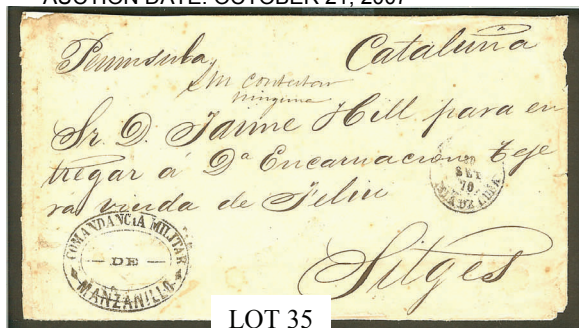 AUCTION DATE: OCTOBER 21, 2007
Peninsula
Cataluña
Sin contestar
ninguna
Sr. D. Jaime Hill para en
tregar á Dª Encarnacion Teje
ra viuda de Feliu
SET
70
COMANDANCIA MILITAR
DE
MANZANILLO
Sitges
LOT 35